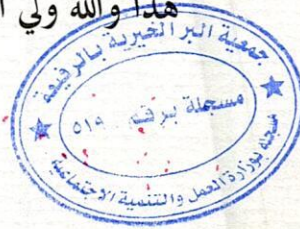 هذا والله ولي ا
جمعية البر الخيرية بالرفيعة
مسجلة برقم ٥١٩
مسجلة بوزارة العمل والتنمية الاجتماعية